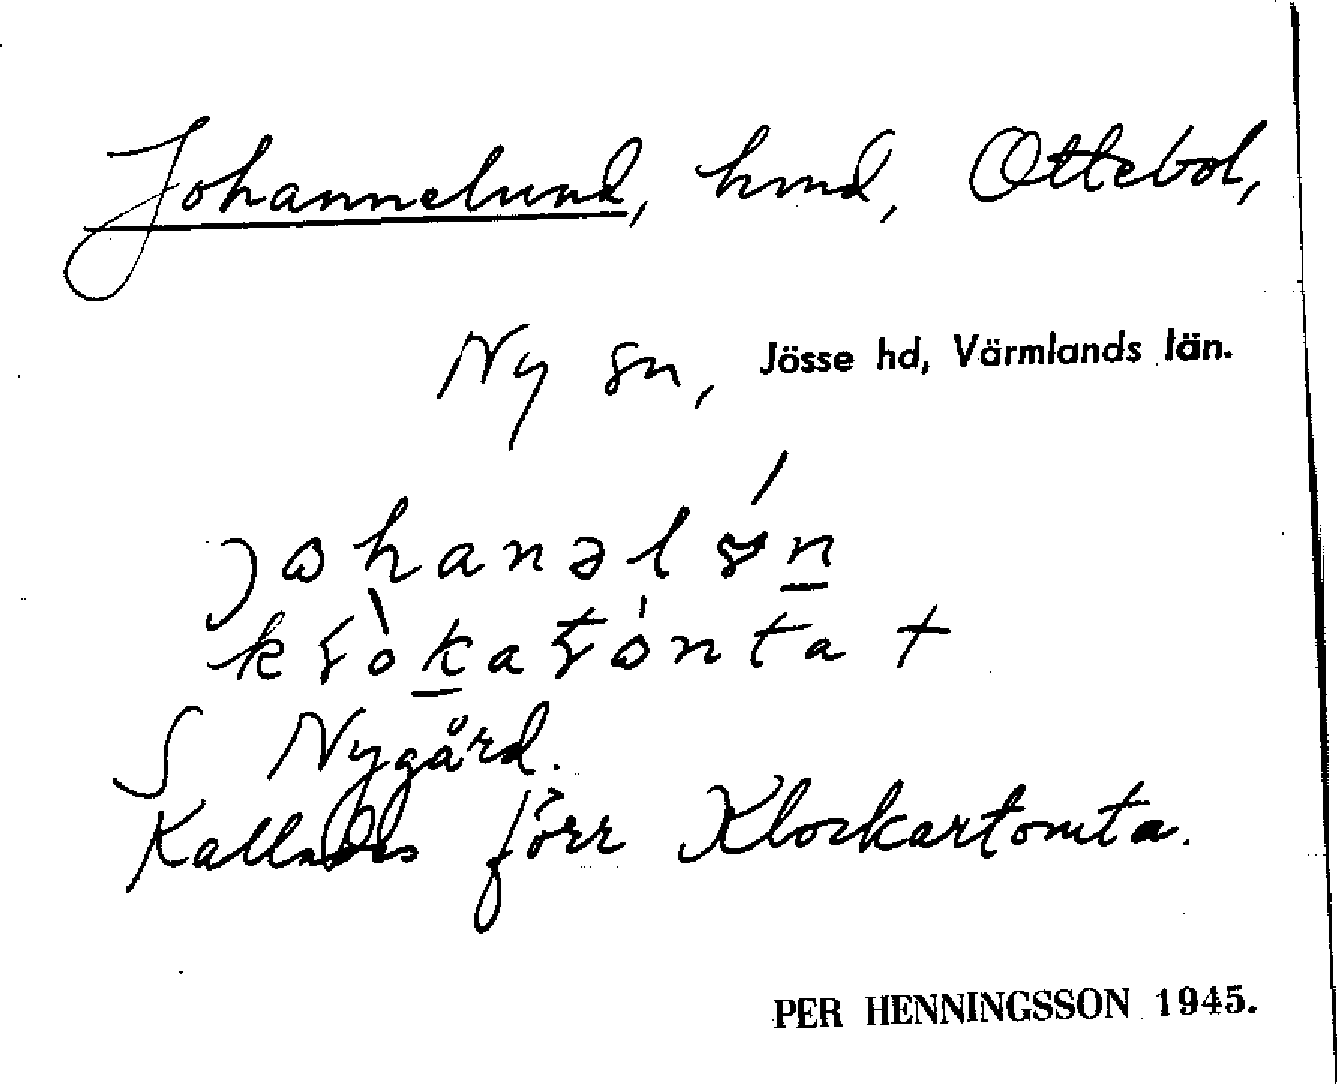 Johannelund, hmd, Ottebol,
Ny sn, Jösse hd, Värmlands län.
S Nygård.
Kallades förr Klockartomta.
PER HENNINGSSON 1945.